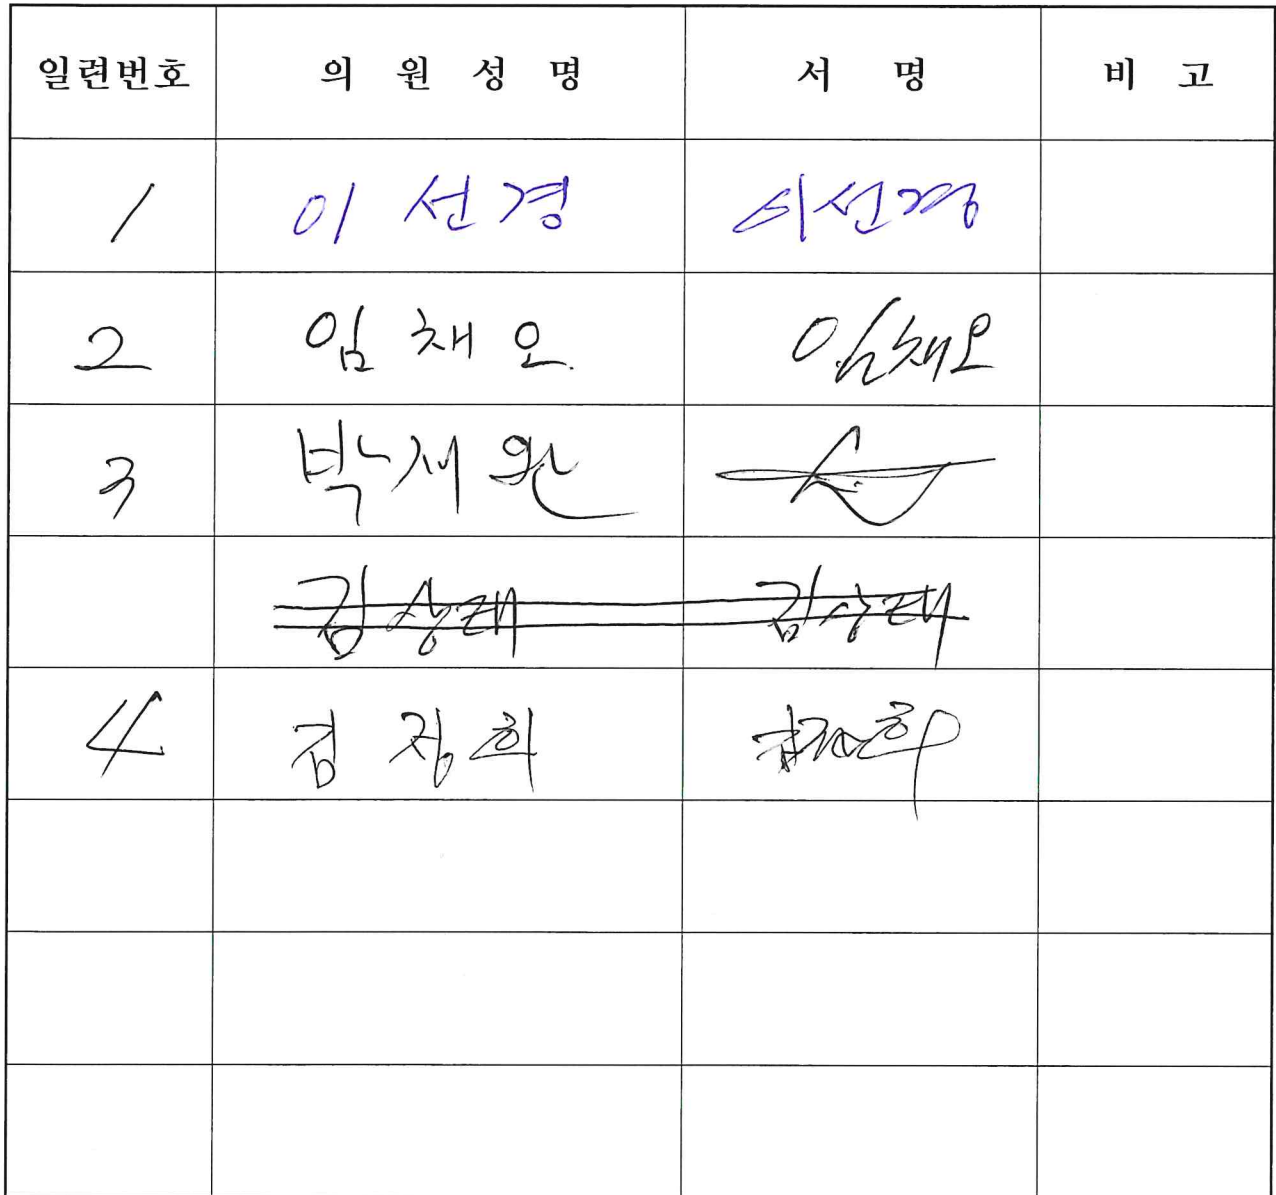 일련번호 의 원 성 명 서 명 비 고
1 이 선 경 이선경
2 임 채 오 임채오
3 박 재 완
김 상 태 김상태
4 김 정 희 김정희